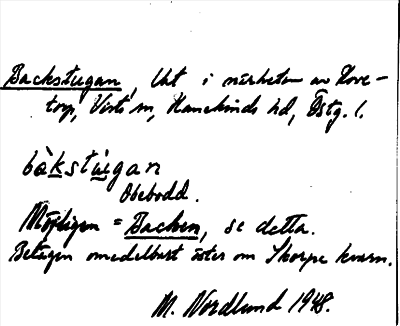 Backstugan, Ut i närheten av Hove-
torp, Vists sn, Hanekinds hd, Östg. l.
bàkstu̇gan
Obebodd.
Möjligen = Backen, se detta.
Belägen omedelbart öster om Skorpe kvarn.
M. Nordlund 1948.